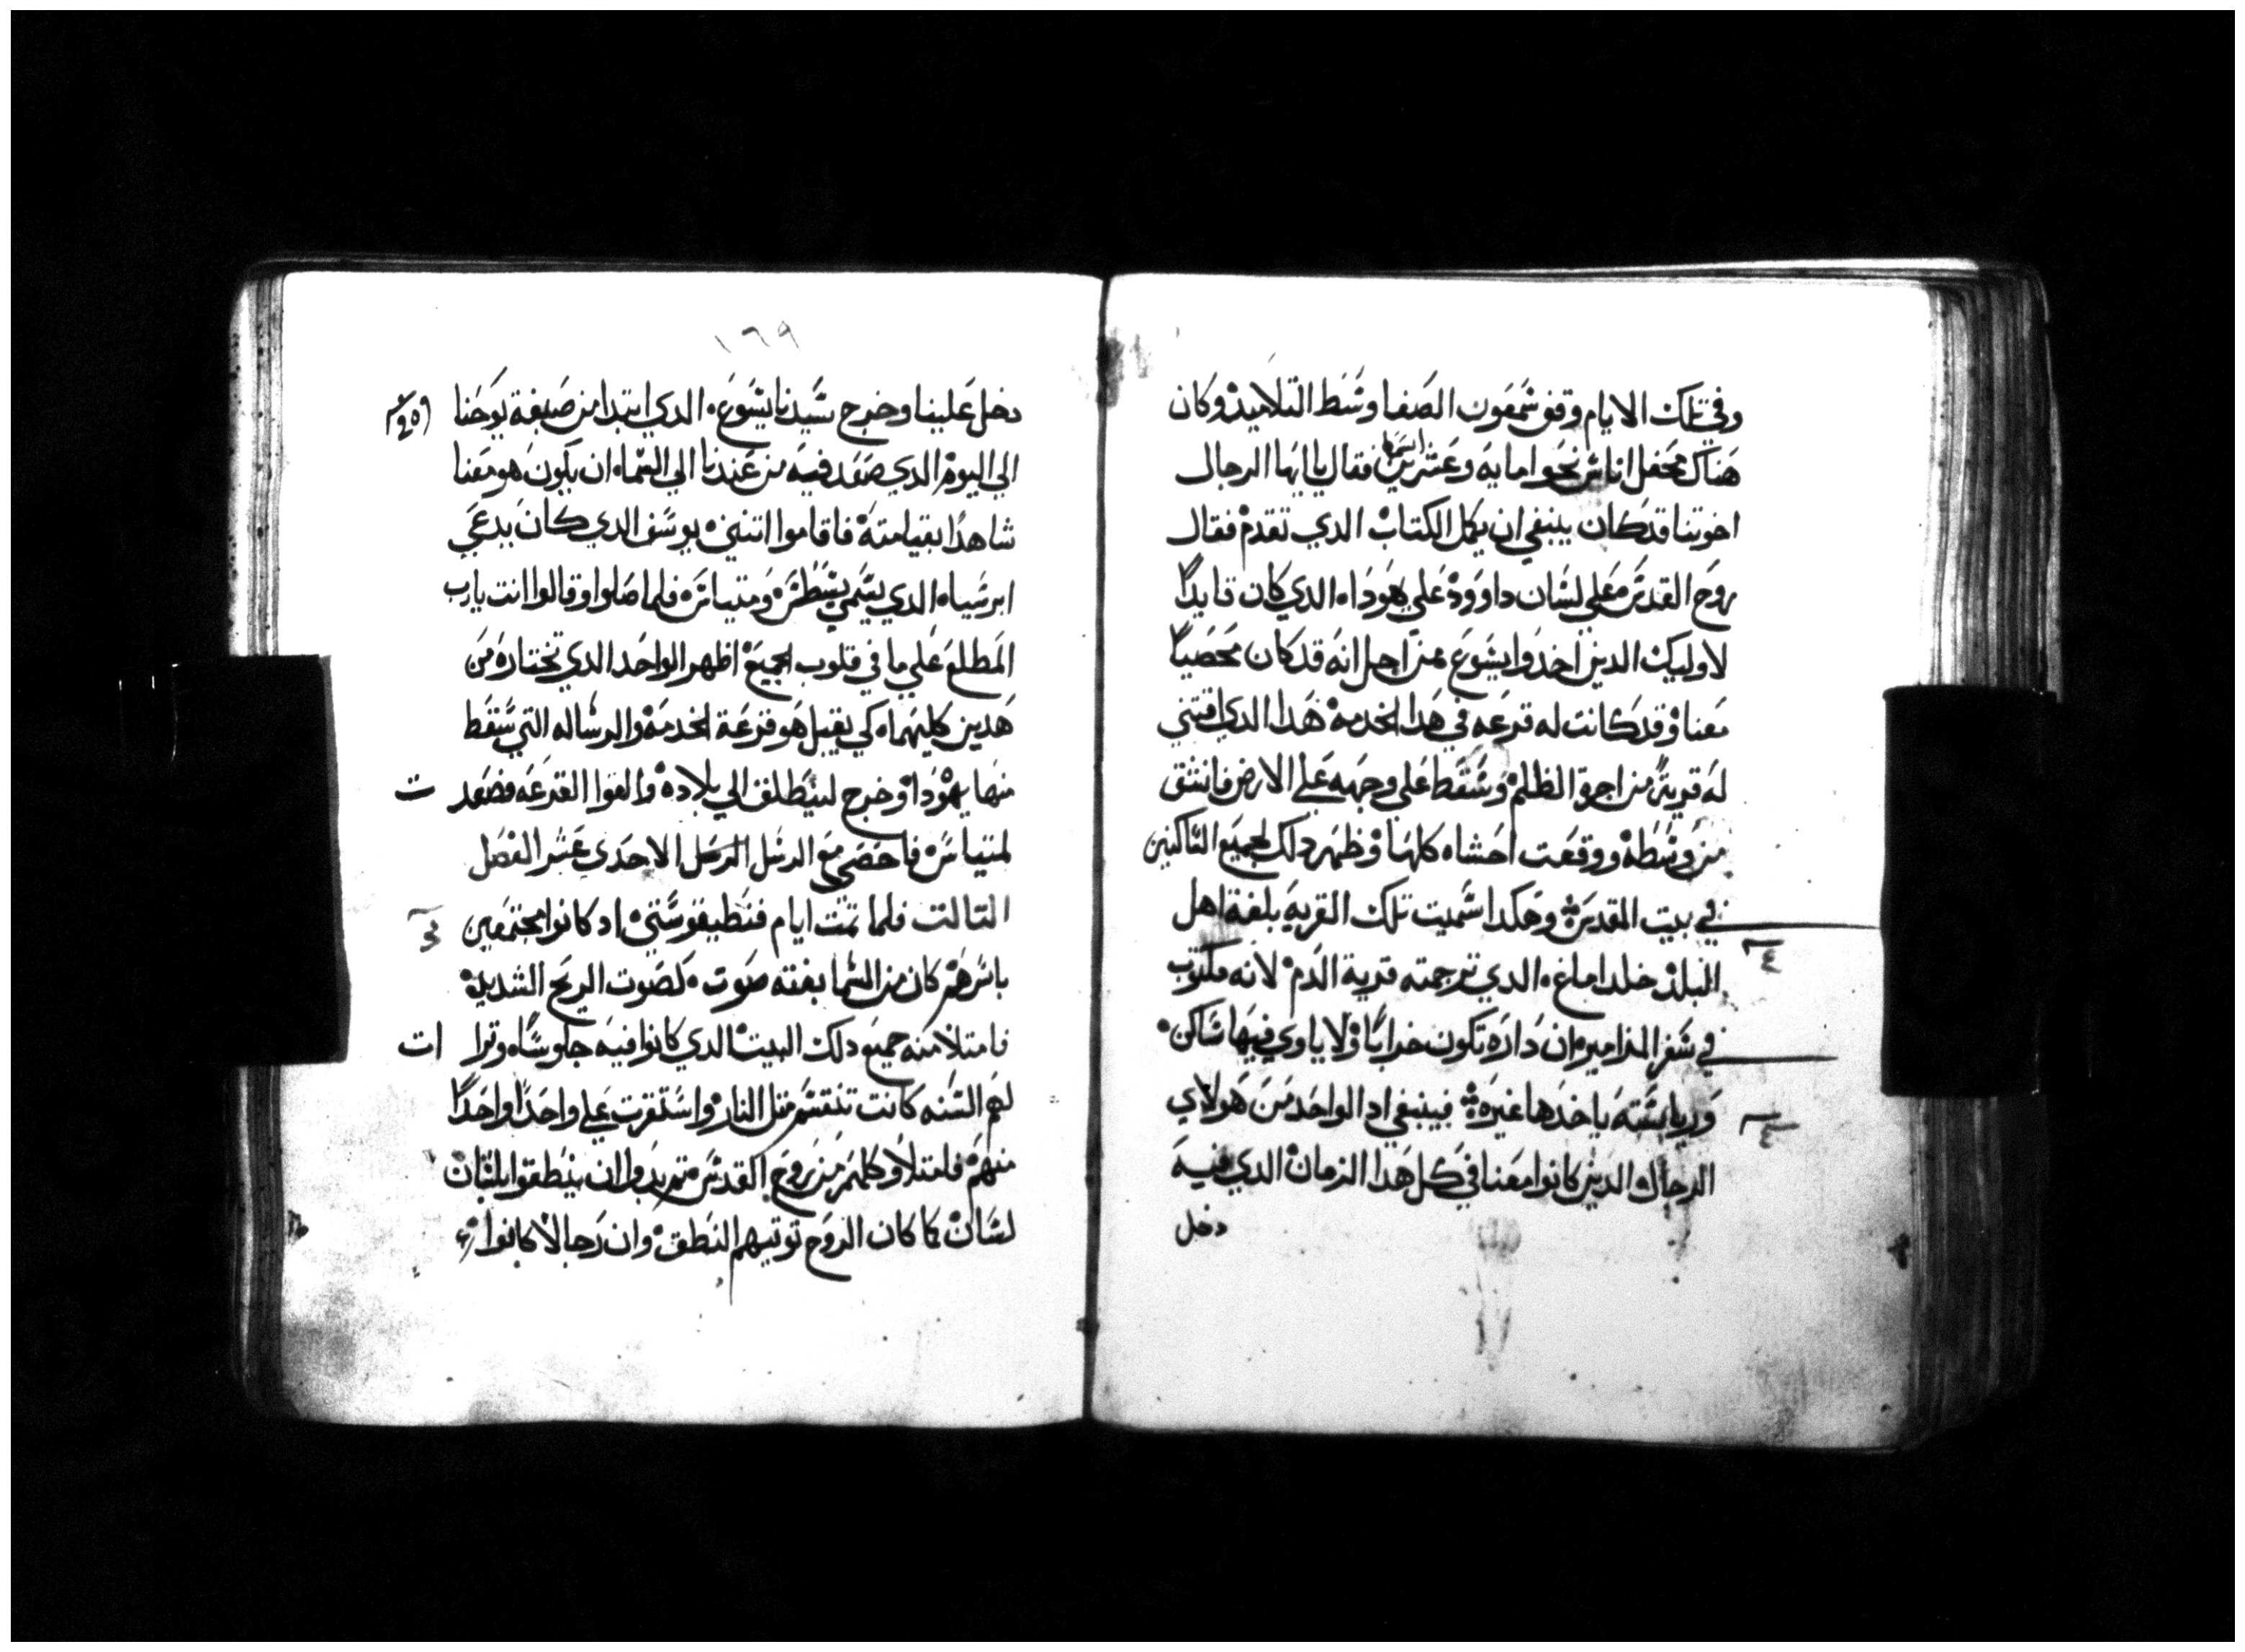 وفي تلك الايام وقف شمعون الصفا وسط التلاميذ وكان
هناك محفل اناس نحوا مايه وعشرين اسما فقال يا ايها الرجال
اخوتنا قد كان ينبغي ان يكمل الكتاب الدي تقدم فقال
روح القدس على لسان داوود على يهودا الدي كان قايدا
لاوليك الدين اخدوا يشوع من اجل انه قد كان محصيا
معنا وقد كانت له قرعه في هدا الخدمه هدا الدي اقتني
له قرية من اجرة الظلم وسقط على وجهه على الارض فانشق
من وسطه ووقعت احشاه كلها وظهر دلك لجميع الساكنين
في بيت المقدس وهكدا سميت تلك القريه بلغة اهل
البلد خلداماغ الدي ترجمته قرية الدم لانه مكتوب
في سفر المزامير ان داره تكون خرابا ولا ياوي فيها ساكن
ورياسته ياخدها غيره فينبغي اد الواحد من هولاي
الرجال الدين كانوا معنا في كل هدا الزمان الدي فيه
دخل
١٦٩
دخل علينا وخرج سيدنا يشوع الدي ابتدا من صبغة يوحنا
الي اليوم الدي صعد فيه من عندنا الي السماء ان يكون هو معنا
شاهدا بقيامته فاقاموا اتنين يوسف الدي كان يدعي
ابرسباه الدي يسمي يسطس ومتياس فلما صلوا وقالوا انت يارب
المطلع على ما في قلوب الجميع اظهر الواحد الدي تختاره من
هدين كليهما كي يقبل هو قرعة الخدمه والرساله التي سقط
منها يهودا وخرج لينطلق الي بلاده والقوا القرعه فصعد ت
لمتياس فاحصي مع الرسل الاحدي عشر الفصل
التالت فلما تمت ايام فنطيقوسطي اد كانوا مجتمعين
باسرهم كان من السما بغته صوت كصوت الريح الشديده
فامتلا منه جميع دلك البيت الدي كانوا فيه جلوسا وترا ات
لهم السنه كانت تنقسم متل النار واستقرت على واحدا واحدا
منهم فامتلاو كلهم من روح القدس ان ينطقوا بلسان
لسان كما كان الروح توتيهم النطق وان رجالا كانوا